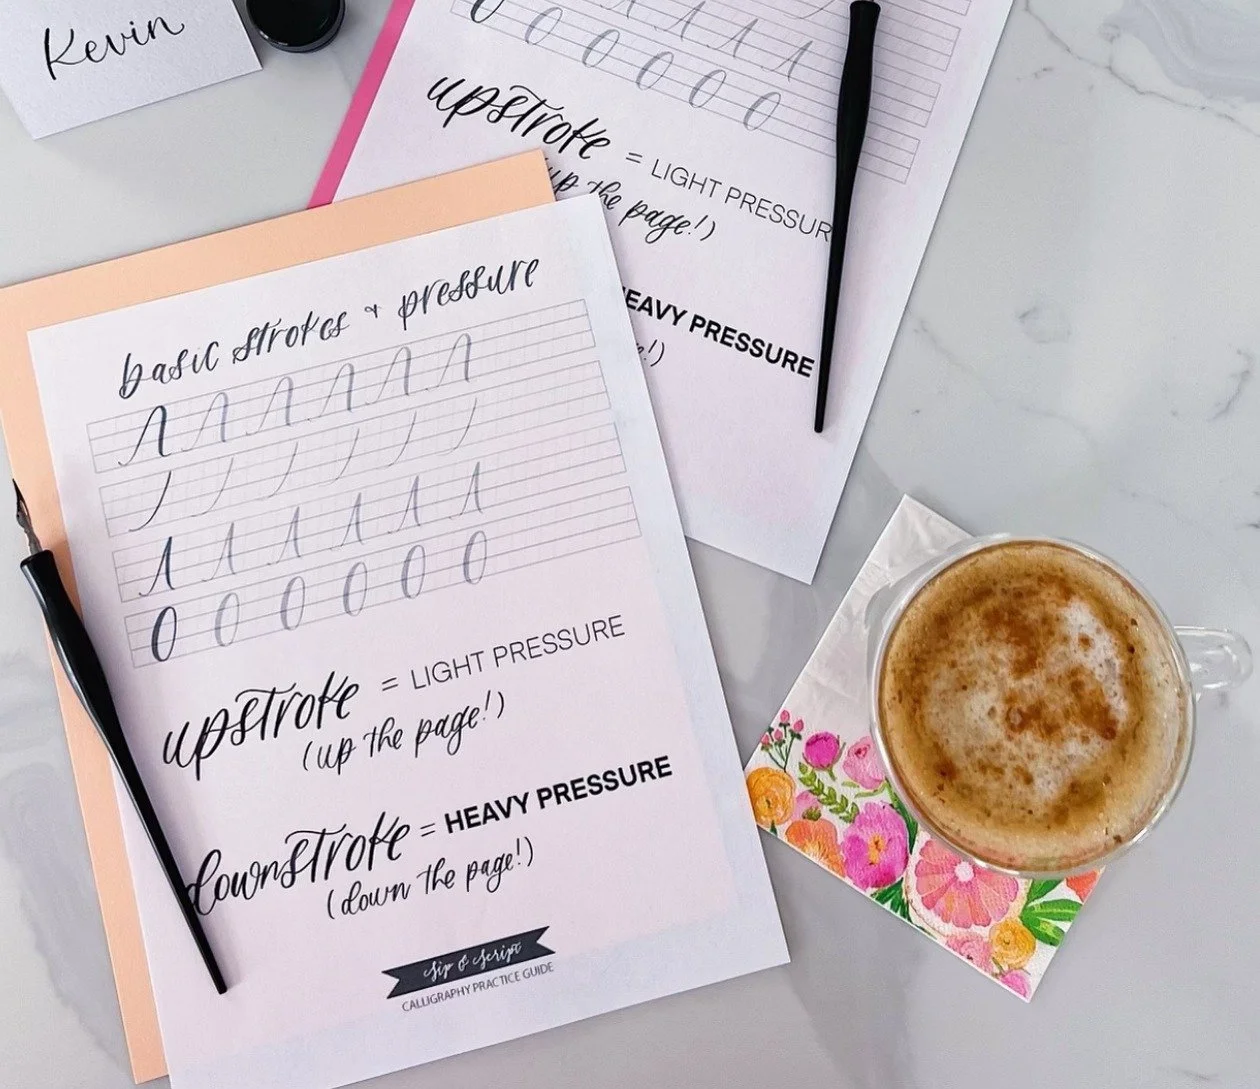 Kevin
upstroke = LIGHT PRESSUR
up the page!)
EAVY PRESSURE
!)
basic strokes + pressure
upstroke = LIGHT PRESSURE
(up the page!)
downstroke = HEAVY PRESSURE
(down the page!)
Sip & Script
CALLIGRAPHY PRACTICE GUIDE